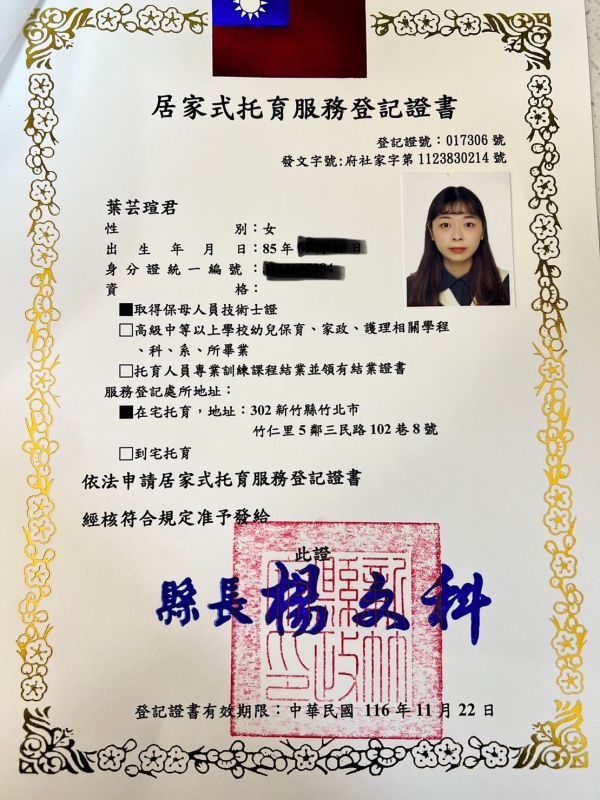 居家式托育服務登記證書
登記證號：017306 號
發文字號：府社家字第 1123830214 號
葉芸瑄君
性別：女
出生年月日：85年 日
身分證統一編號：
資格：
■取得保母人員技術士證
□高級中等以上學校幼兒保育、家政、護理相關學程
、科、系、所畢業
□托育人員專業訓練課程結業並領有結業證書
服務登記處所地址：
■在宅托育，地址：302 新竹縣竹北市
竹仁里 5 鄰三民路 102 巷 8 號
□到宅托育
依法申請居家式托育服務登記證書
經核符合規定准予發給
此證
縣長 楊文科
登記證書有效期限：中華民國 116 年 11 月 22 日